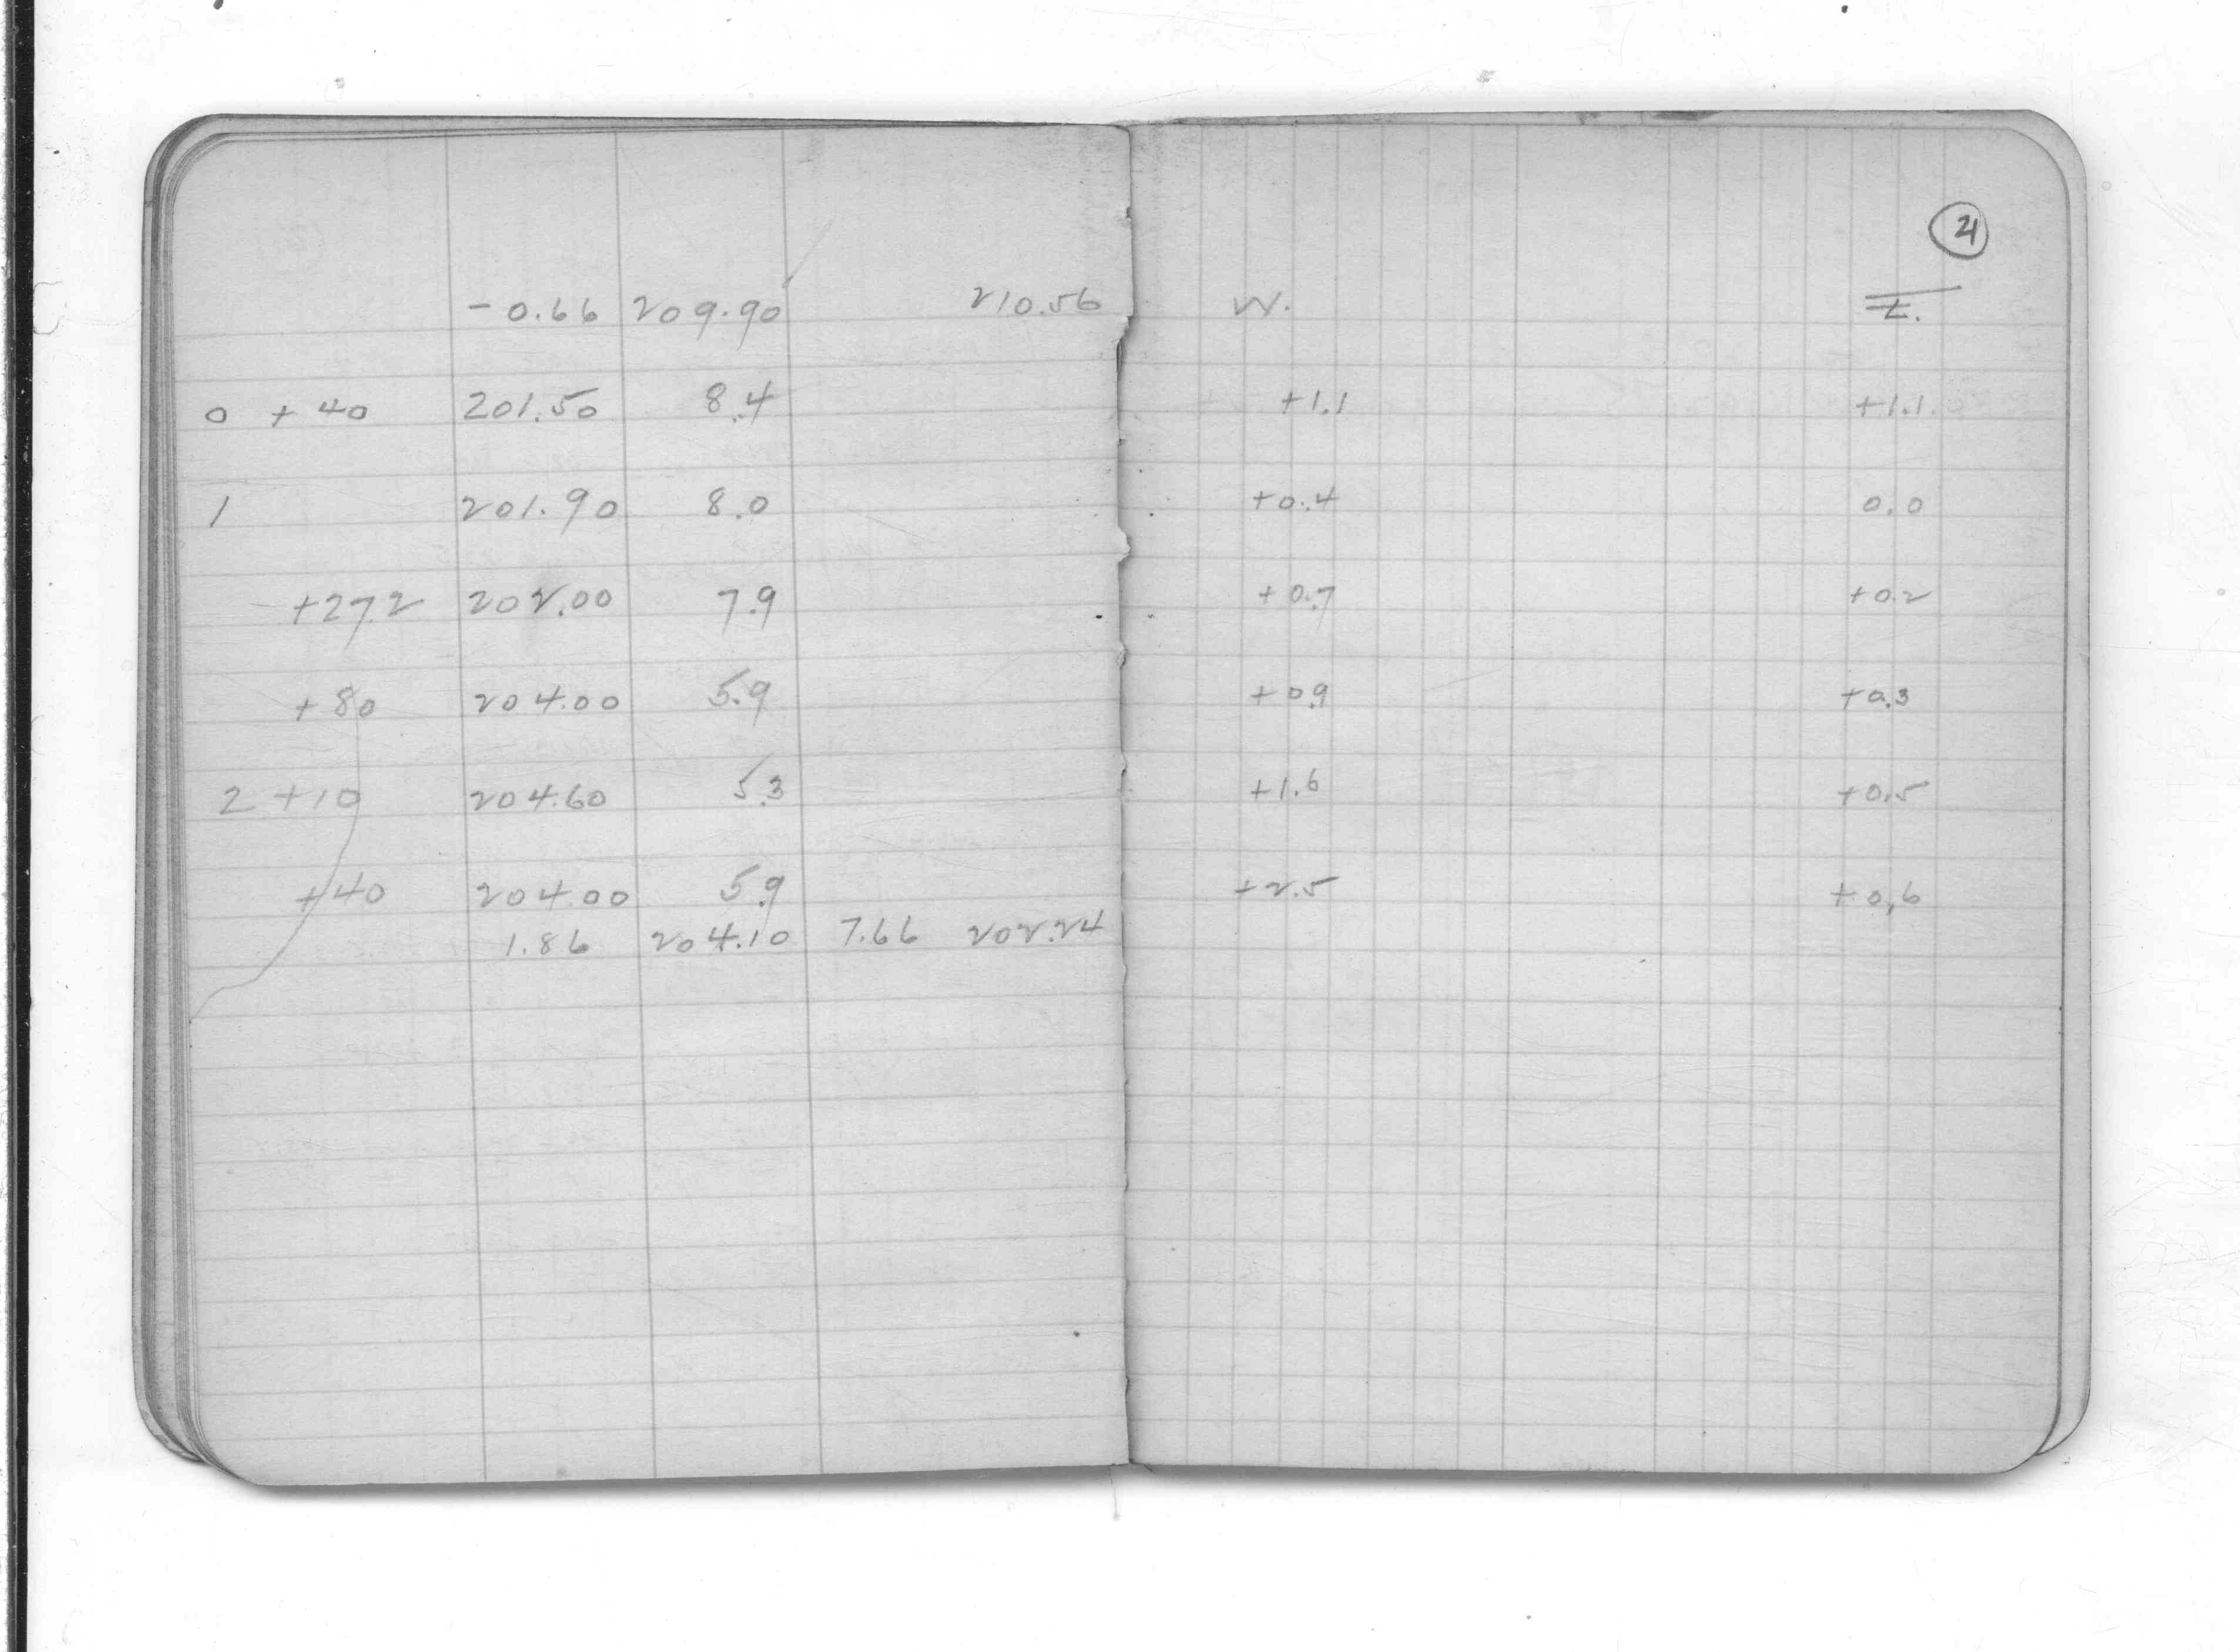 21
-0.66 209.90 210.56 W. E.
0 + 40 201.50 8.4 +1.1 +1.1
1 201.90 8.0 +0.4 0.0
+27.2 202.00 7.9 +0.7 +0.2
+80 204.00 5.9 +0.9 +0.3
2 +10 204.60 5.3 +1.6 +0.5
+40 204.00 5.9 +2.5 +0.6
1.86 204.10 7.66 202.24